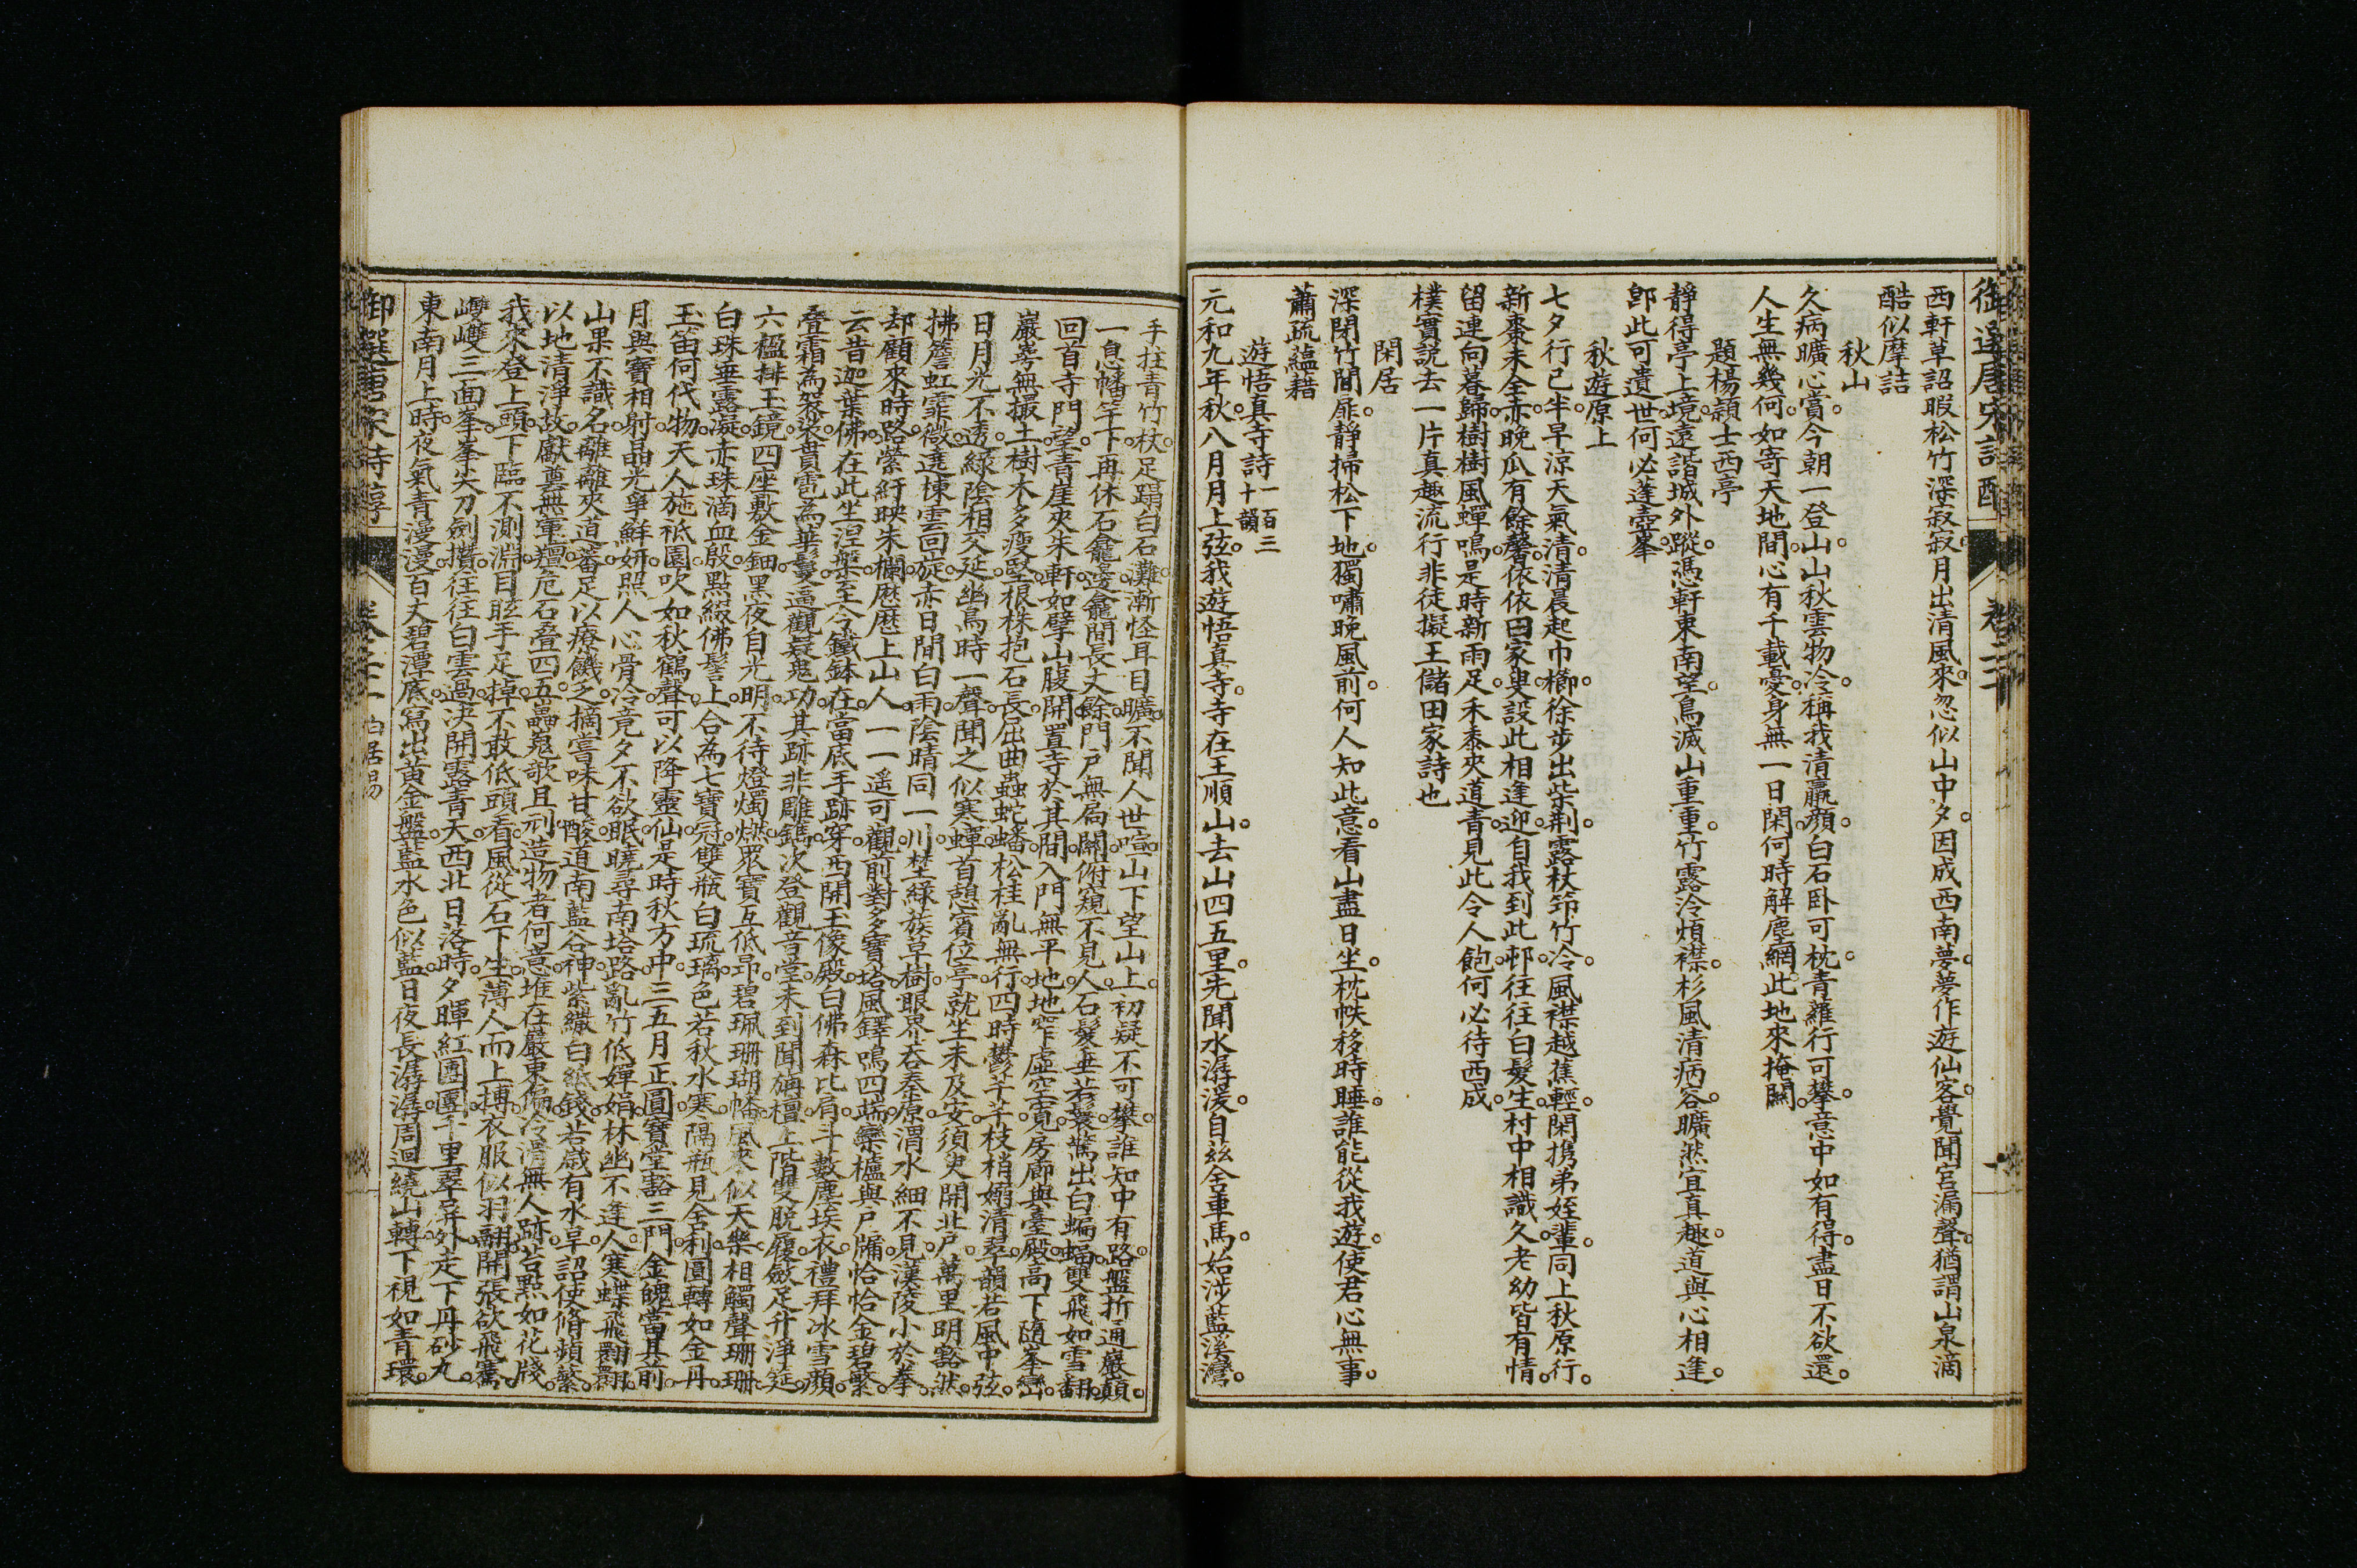 御選唐宋詩醇 卷二十 一
西軒草詔暇。松竹深寂寂。月出清風來。忽似山中夕。因成西南夢。夢作遊仙客。覺聞宮漏聲。猶謂山泉滴
酷似摩詰
秋山
久病曠心賞。今朝一登山。山秋雲物冷。稱我清羸顏。白石卧可枕。青蘿行可攀。意中如有得。盡日不欲還。
人生無幾何。如寄天地間。心有千載憂。身無一日閑。何時解塵網。此地來掩關。
題楊潁士西亭
靜得亭上境。遠諧城外蹤。憑軒東南望。鳥滅山重重。竹露泠煩襟。杉風清病容。曠然宜真趣。道與心相逢。
卽此可遺世。何必蓬壺峯。
秋遊原上
七夕行已半。早涼天氣清。清晨起巾櫛。徐步出柴荆。露杖筇竹冷。風襟越蕉輕。閑攜弟姪輩。同上秋原行。
新棗未全赤。晚瓜有餘馨。依依田家叟。設此相逢迎。自我到此邨。往往白髮生。村中相識久。老幼皆有情。
留連向暮歸。樹樹風蟬鳴。是時新雨足。禾黍夾道青。見此令人飽。何必待西成。
樸實説去一片真趣流行非徒擬王儲田家詩也
閑居
深閉竹間扉。靜掃松下地。獨嘯晚風前。何人知此意。看山盡日坐。枕帙移時睡。誰能從我遊。使君心無事。
蕭疏蘊藉
遊悟真寺詩一百三十韻
元和九年秋。八月月上弦。我遊悟真寺。寺在王順山。去山四五里。先聞水潺湲。自兹舍車馬。始涉藍溪灣。
手拄青竹杖。足蹋白石灘。漸怪耳目曠。不聞人世喧。山下望山上。初疑不可攀。誰知中有路。盤折通巖巔。
一息幡竿下。再休石龕邊。龕間長丈餘。門戶無扃關。俯窺不見人。石髮垂若鬟。驚出白蝙蝠。雙飛如雪翻。
回首寺門望。青崖夾朱軒。如擘山腹開。置寺於其間。入門無平地。地窄虛空寬。房廊與臺殿。高下隨峯巒。
巖崿無撮土。樹木多瘦堅。根株抱石長。屈曲蟲蛇蟠。松桂亂無行。四時鬱芊芊。枝梢嫋清翠。韻若風中弦。
日月光不透。綠陰相交延。幽鳥時一聲。聞之似寒蟬。首憩賓位亭。就坐未及安。須臾開北戶。萬里明豁然。
拂簷虹霏微。遶棟雲回旋。赤日間白雨。陰晴同一川。埜綠簇草樹。眼界吞秦原。渭水細不見。漢陵小於拳。
却顧來時路。縈紆映朱欄。歷歷上山人。一一遥可觀。前對多寶塔。風鐸鳴四端。欒櫨與戶牖。恰恰金碧繁。
云昔迦葉佛。在此坐涅槃。至今鐵鉢在。當底手跡穿。西開玉像殿。白佛森比肩。斗藪塵埃衣。禮拜冰雪顏。
疊霜為袈裟。貫雹為華鬘。逼觀疑鬼功。其跡非雕鐫。次登觀音堂。未到聞栴檀。上階雙脫履。斂足升淨筵。
六楹排玉鏡。四座敷金鈿。黑夜自光明。不待燈燭燃。眾寶互低昂。碧珮珊瑚幡。風來似天樂。相觸聲珊珊。
白珠垂露凝。赤珠滴血殷。點綴佛髻上。合為七寶冠。雙瓶白琉璃。色若秋水寒。隔瓶見舍利。圓轉如金丹。
玉笛何代物。天人施祗園。吹如秋鶴聲。可以降靈仙。是時秋方中。三五月正圓。寶堂豁三門。金魄當其前。
月與寶相射。晶光爭鮮妍。照人心骨冷。竟夕不欲眠。曉尋南塔路。亂竹低嬋娟。林幽不逢人。寒蝶飛翾翾。
山果不識名。離離夾道蕃。足以療饑乏。摘嘗味甘酸。道南藍谷神。紫繖白紙錢。若歲有水旱。詔使脩蘋蘩。
以地清淨故。獻奠無葷羶。危石疊四五。嵬欹且刓。造物者何意。堆在巖東偏。冷滑無人跡。苔點如花牋。
我來登上頭。下臨不測淵。目眩手足掉。不敢低頭看。風從石下生。薄人而上摶。衣服似羽翮。開張欲飛騫。
三面峯。峯尖刀劍攢。往往白雲過。決開露青天。西北日落時。夕暉紅團團。千里翠屏外。走下丹砂丸。
東南月上時。夜氣青漫漫。百丈碧潭底。寫出黃金盤。藍水色似藍。日夜長潺潺。周迴繞山轉。下視如青環。
御選唐宋詩醇 卷二十一 白居易